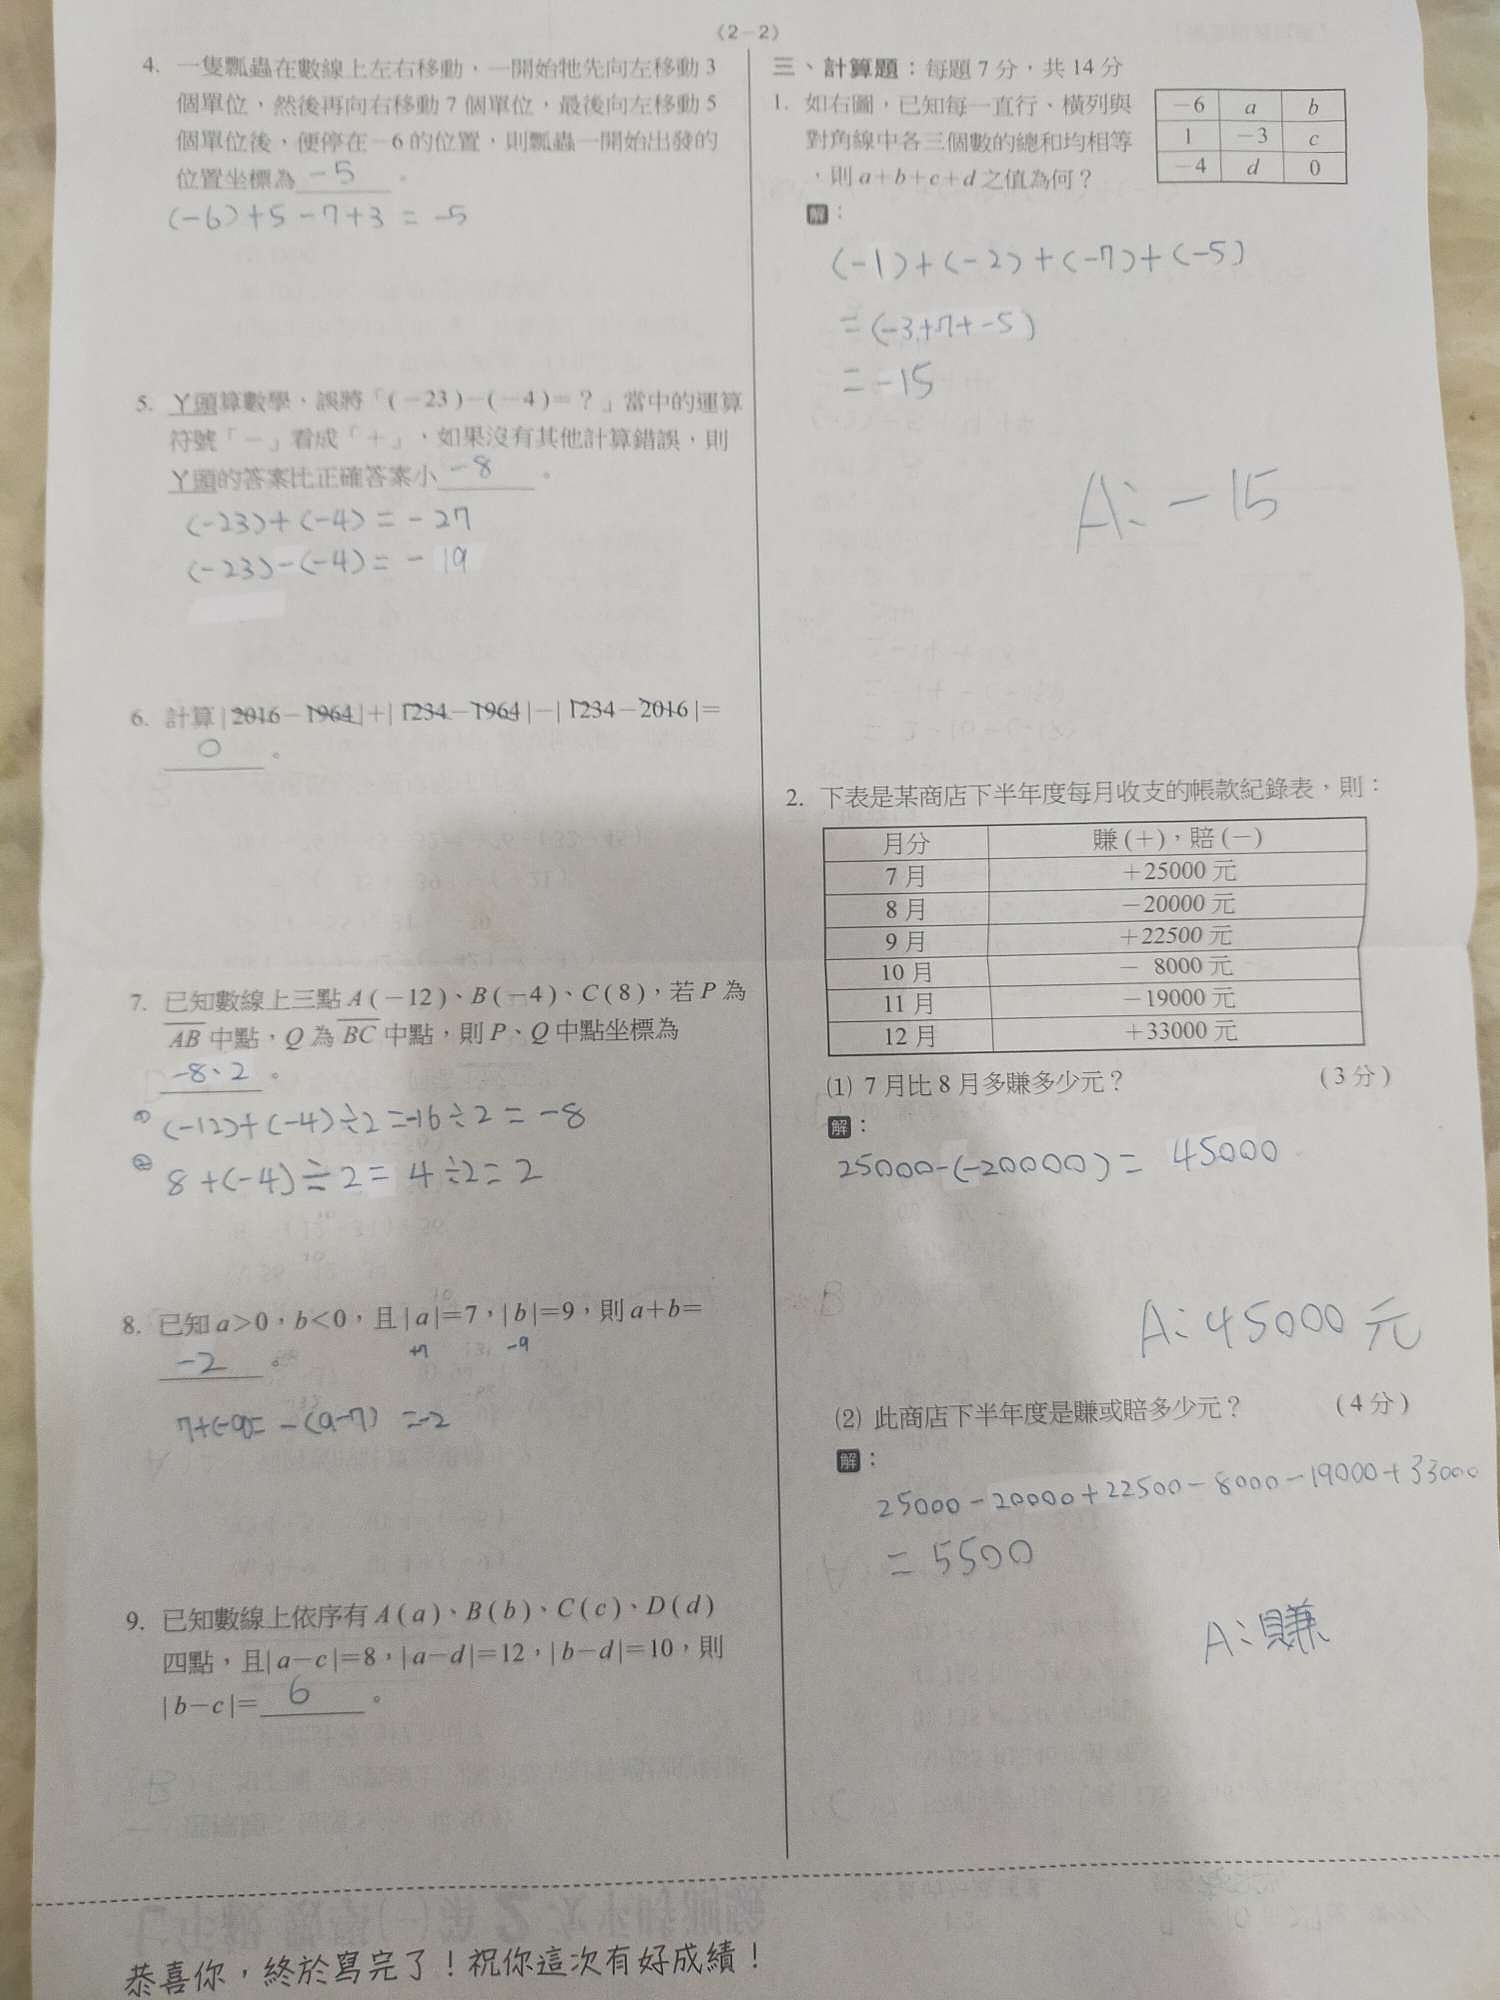 (2-2)
4. 一隻瓢蟲在數線上左右移動，一開始牠先向左移動3
個單位，然後再向右移動7個單位，最後向左移動5
個單位後，便停在-6的位置，則瓢蟲一開始出發的
位置坐標為 -5 。
(-6)+5-7+3=-5
5. 丫頭算數學，誤將「(-23)-(-4)=？」當中的運算
符號「-」看成「+」，如果沒有其他計算錯誤，則
丫頭的答案比正確答案小 -8 。
(-23)+(-4)=-27
(-23)-(-4)=-19
6. 計算|2016-1964|+|1234-1964|-|1234-2016|=
0 。
7. 已知數線上三點A(-12)、B(-4)、C(8)，若P為
AB中點，Q為BC中點，則P、Q中點坐標為
-8、2 。
① (-12)+(-4)÷2=-16÷2=-8
② 8+(-4)÷2=4÷2=2
8. 已知a>0，b<0，且|a|=7，|b|=9，則a+b=
+7 -9
-2 。
7+(-9)=-(9-7)=-2
9. 已知數線上依序有A(a)、B(b)、C(c)、D(d)
四點，且|a-c|=8，|a-d|=12，|b-d|=10，則
|b-c|= 6 。
三、計算題：每題7分，共14分
1. 如右圖，已知每一直行、橫列與
對角線中各三個數的總和均相等
，則a+b+c+d之值為何？
-6 a b
1 -3 c
-4 d 0
解：
(-1)+(-2)+(-7)+(-5)
=(-3+7+-5)
=-15
A:-15
2. 下表是某商店下半年度每月收支的帳款紀錄表，則：
月分 賺(+)，賠(-)
7月 +25000元
8月 -20000元
9月 +22500元
10月 - 8000元
11月 -19000元
12月 +33000元
(1) 7月比8月多賺多少元？ (3分)
解：
25000-(-20000)=45000
A:45000元
(2) 此商店下半年度是賺或賠多少元？ (4分)
解：
25000-20000+22500-8000-19000+33000
=5500
A:賺
恭喜你，終於寫完了！祝你這次有好成績！